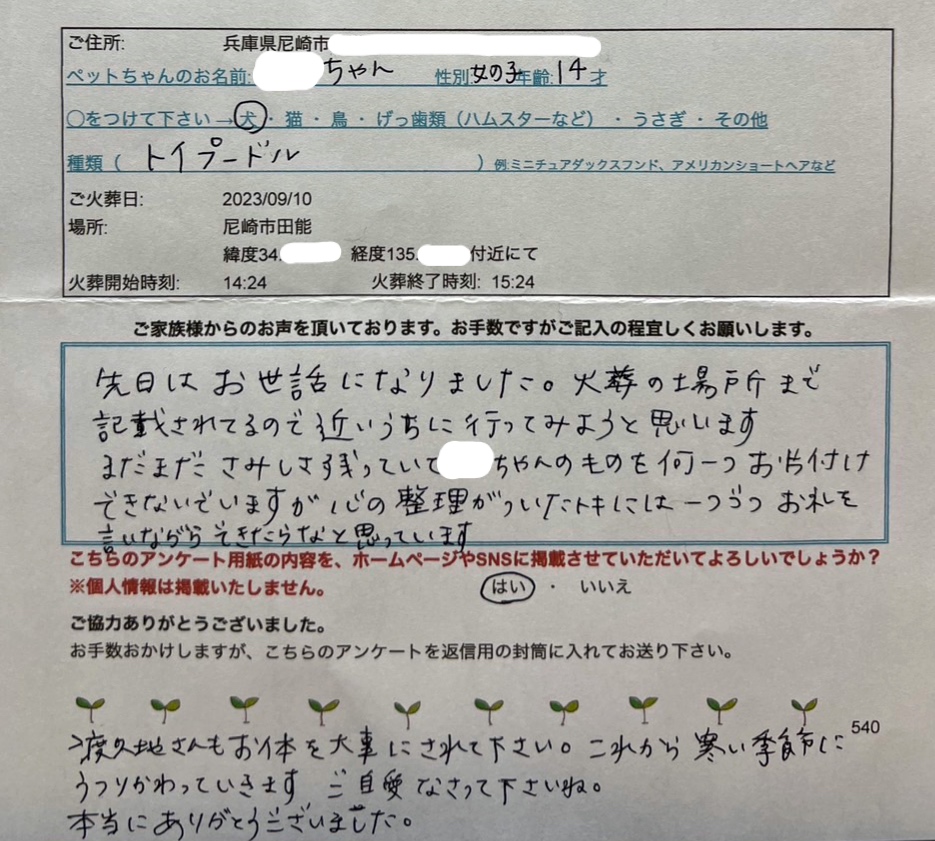 ご住所: 兵庫県尼崎市
ペットちゃんのお名前: ちゃん 性別:女の子年齢:14才
〇をつけて下さい→犬・猫・鳥・げっ歯類（ハムスターなど）・うさぎ・その他
種類（トイプードル）例:ミニチュアダックスフンド、アメリカンショートヘアなど
ご火葬日: 2023/09/10
場所: 尼崎市田能
緯度34. 経度135. 付近にて
火葬開始時刻: 14:24 火葬終了時刻: 15:24
ご家族様からのお声を頂いております。お手数ですがご記入の程宜しくお願いします。
先日はお世話になりました。火葬の場所まで
記載されてるので近いうちに行ってみようと思います
まだまださみしさ残っていて ちゃんのものを何一つお片付け
できないでいますが心の整理がついたトキには一つづつお礼を
言いながらできたらなと思っています
こちらのアンケート用紙の内容を、ホームページやSNSに掲載させていただいてよろしいでしょうか？
※個人情報は掲載いたしません。 はい ・ いいえ
ご協力ありがとうございました。
お手数おかけしますが、こちらのアンケートを返信用の封筒に入れてお送り下さい。
540
渡久地さんもお体を大事にされて下さい。これから寒い季節に
うつりかわっていきます ご自愛なさって下さいね。
本当にありがとうございました。